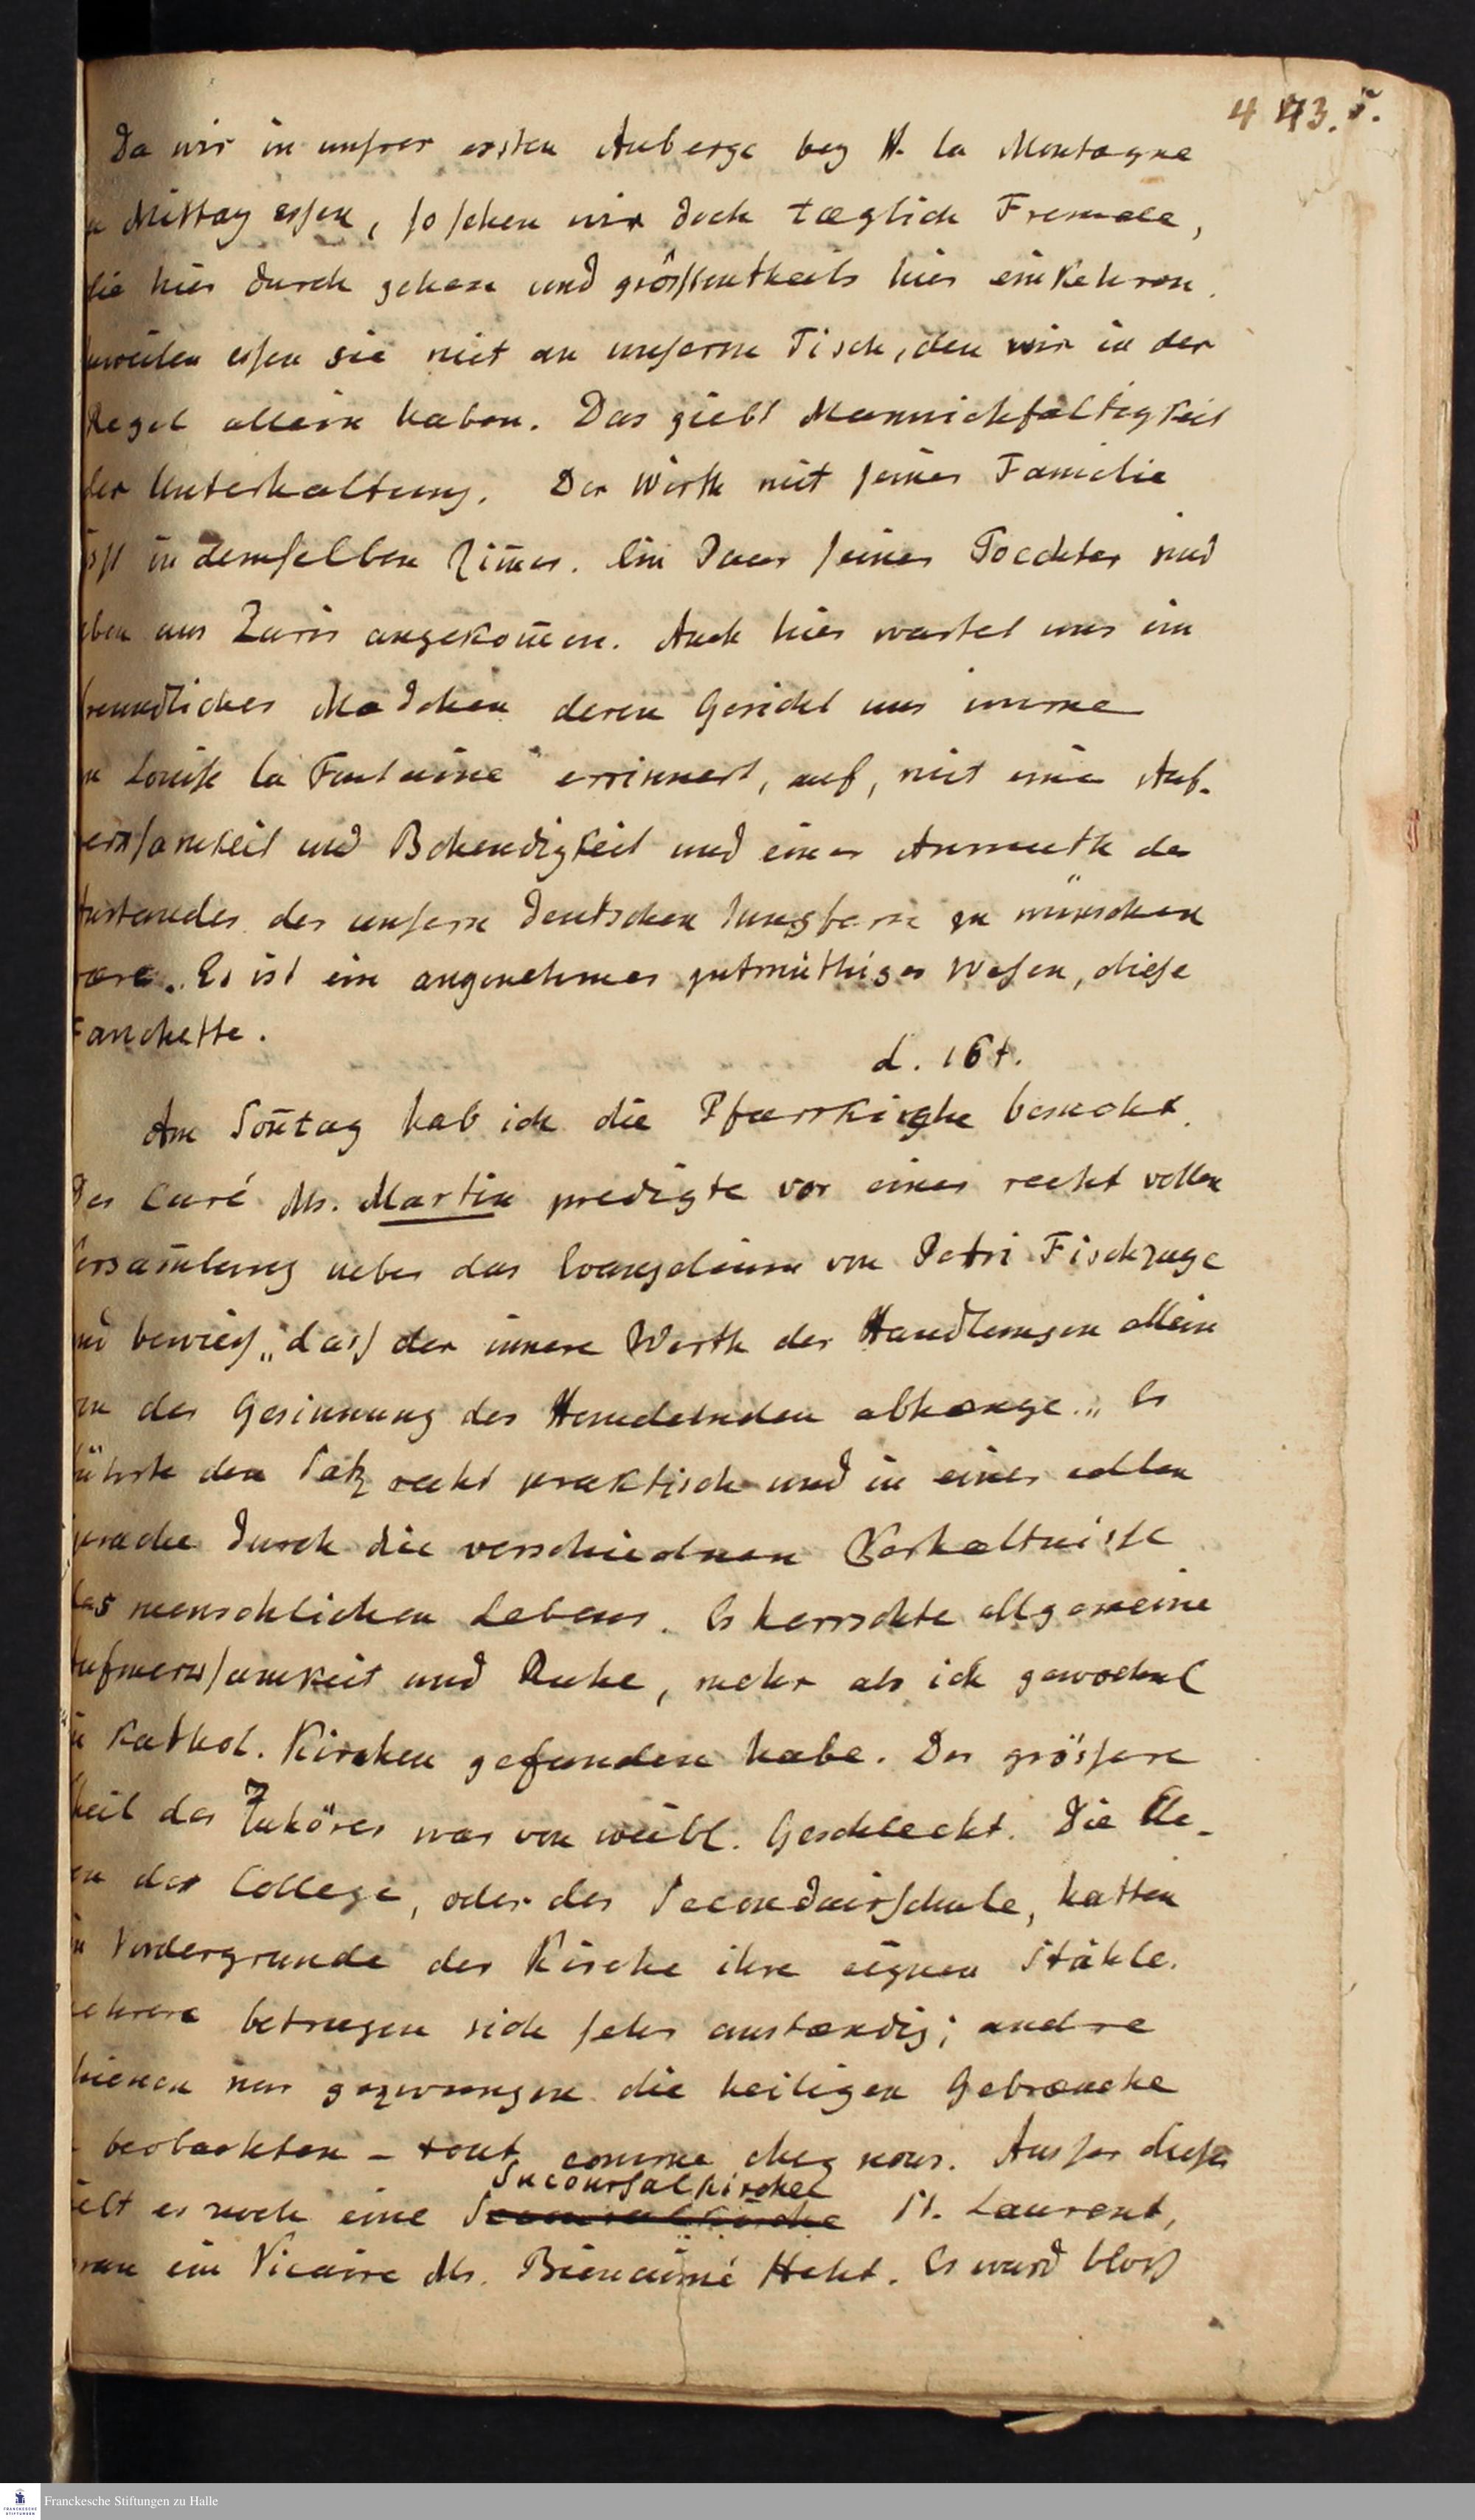 4 43. 5.
Da wir in unsrer ersten Auberge bey H. la Montagne
zu Mittag essen, so sehen wir doch tæglich Fremde,
die hier durch gehen und grössentheils hier einkehren.
Zuweilen essen sie mit an unserm Tisch, den wir in der
Regel allein haben. Das giebt Mannichfaltigkeit
der Unterhaltung. Der Wirth mit seiner Familie
isst in demselben Zim̄er. Ein Paar seiner Toechter sind
eben aus Paris angekom̄en. Auch hier wartet uns ein
freundliches Mædchen deren Gesicht uns immer
an Louise la Fontaine errinnert, auf, mit einer Auf-
merksamkeit und Behendigkeit und einer Anmuth des
Anstandes der unsern deutschen Jungfern zu wünschen
wære. Es ist ein angenehmes gutmüthiges Wesen, diese
Fanchette.
d. 16t.
Am Son̄tag hab ich die Pfarrkirche besucht.
Der Curé Mr. Martin predigte vor einer recht vollen
Versam̄lung ueber das Evangelium von Petri Fischzuge
und bewies „dass der innere Werth der Handlungen allein
von der Gesinnung des Handelnden abhænge.„ Er
führte den Satz recht praktisch und in einer edlen
Sprache durch die verschiednen Verhæltnisse
des menschlichen Lebens. Es herrschte allgemeine
Aufmerksamkeit und Ruhe, mehr als ich gewoehnl
in kathol. Kirchen gefunden habe. Der grössere
Theil der Zuhörer war von weibl. Geschlecht. Die Ele-
ven der College, oder der Secondairschule, hatten
im Vordergrunde der Kirche ihre eignen Stühle.
Mehrere betrugen sich sehr anstændig; andre
schienen nur gezwungen die heiligen Gebræuche
zu beobachten – tout comme chez nous. Ausser dieser
Succoursalkirche
giebt es noch eine St. Laurent,
woran ein Vicaire Mr. Bienaimé steht. Es ward bloss
Franckesche Stiftungen zu Halle